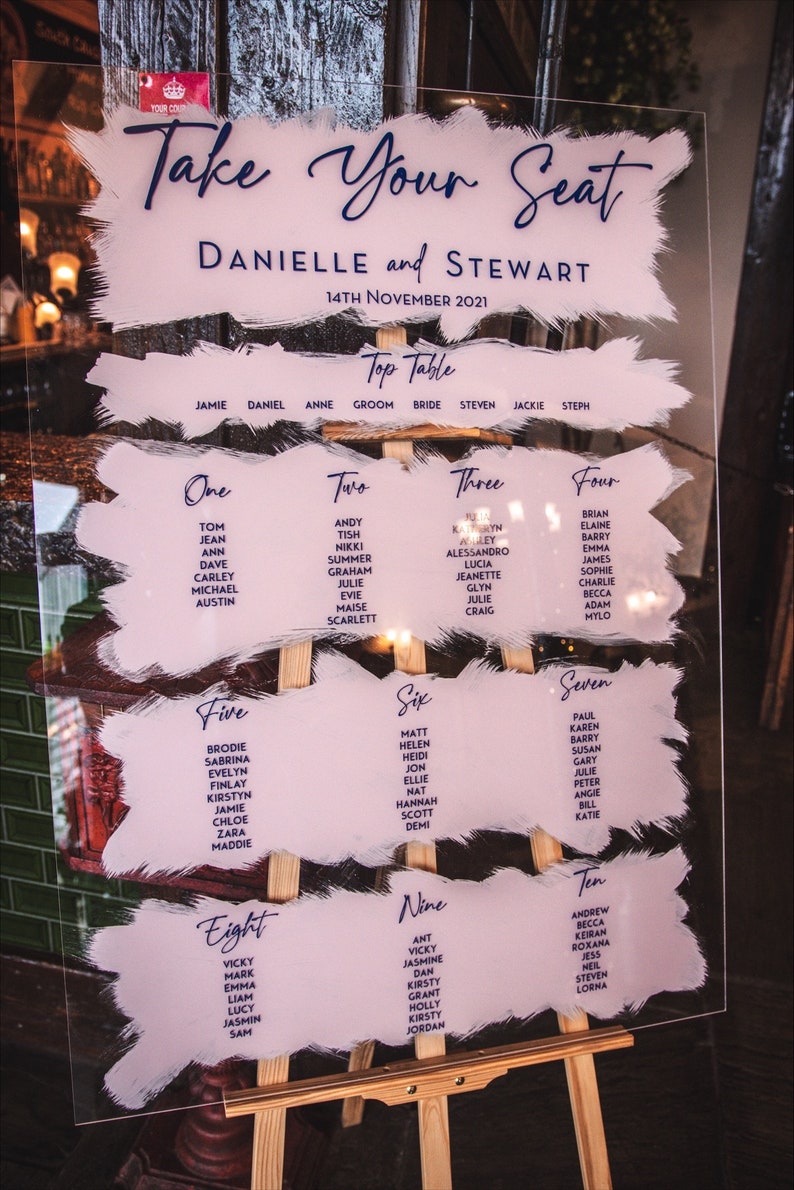 YOUR COU
Take Your Seat
DANIELLE and STEWART
14TH NOVEMBER 2021
Top Table
JAMIE DANIEL ANNE GROOM BRIDE STEVEN JACKIE STEPH
One
TOM
JEAN
ANN
DAVE
CARLEY
MICHAEL
AUSTIN
Two
ANDY
TISH
NIKKI
SUMMER
GRAHAM
JULIE
EVIE
MAISE
SCARLETT
Three
JULIA
KATHERYN
ASHLEY
ALESSANDRO
LUCIA
JEANETTE
GLYN
JULIE
CRAIG
Four
BRIAN
ELAINE
BARRY
EMMA
JAMES
SOPHIE
CHARLIE
BECCA
ADAM
MYLO
Five
BRODIE
SABRINA
EVELYN
FINLAY
KIRSTYN
JAMIE
CHLOE
ZARA
MADDIE
Six
MATT
HELEN
HEIDI
JON
ELLIE
NAT
HANNAH
SCOTT
DEMI
Seven
PAUL
KAREN
BARRY
SUSAN
GARY
JULIE
PETER
ANGIE
BILL
KATIE
Eight
VICKY
MARK
EMMA
LIAM
LUCY
JASMIN
SAM
Nine
ANT
VICKY
JASMINE
DAN
KIRSTY
GRANT
HOLLY
KIRSTY
JORDAN
Ten
ANDREW
BECCA
KEIRAN
ROXANA
JESS
NEIL
STEVEN
LORNA